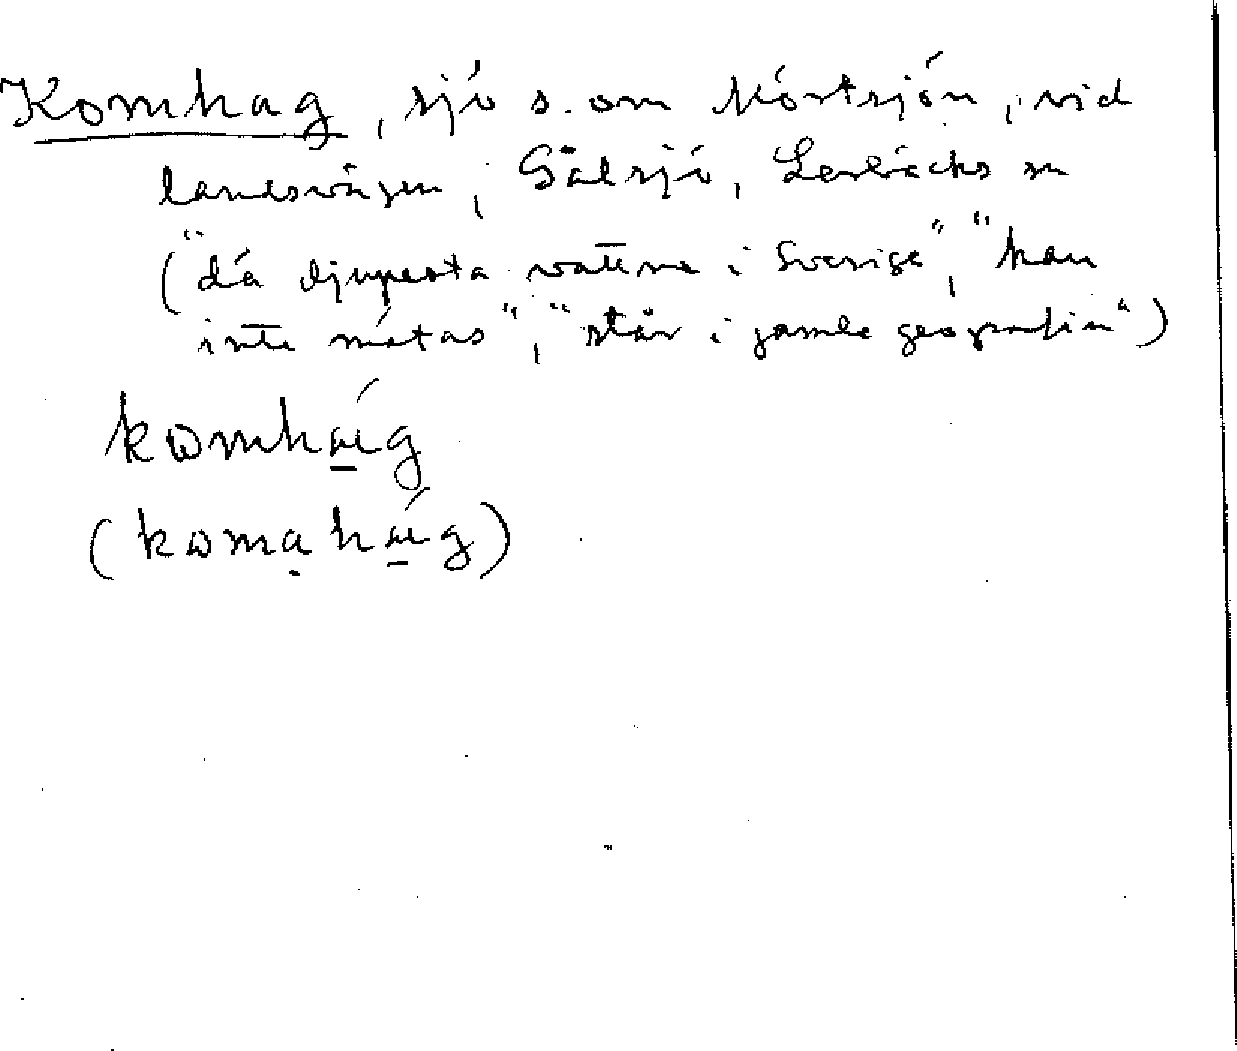 Komhag, sjö s. om Mörtsjön, vid
landsvägen, Gålsjö, Lerbäcks sn
("dä djupesta vattne i Sverige", "kan
inte mätas", "står i gamle geografin")
kɷmhág
(kɷmạhág)